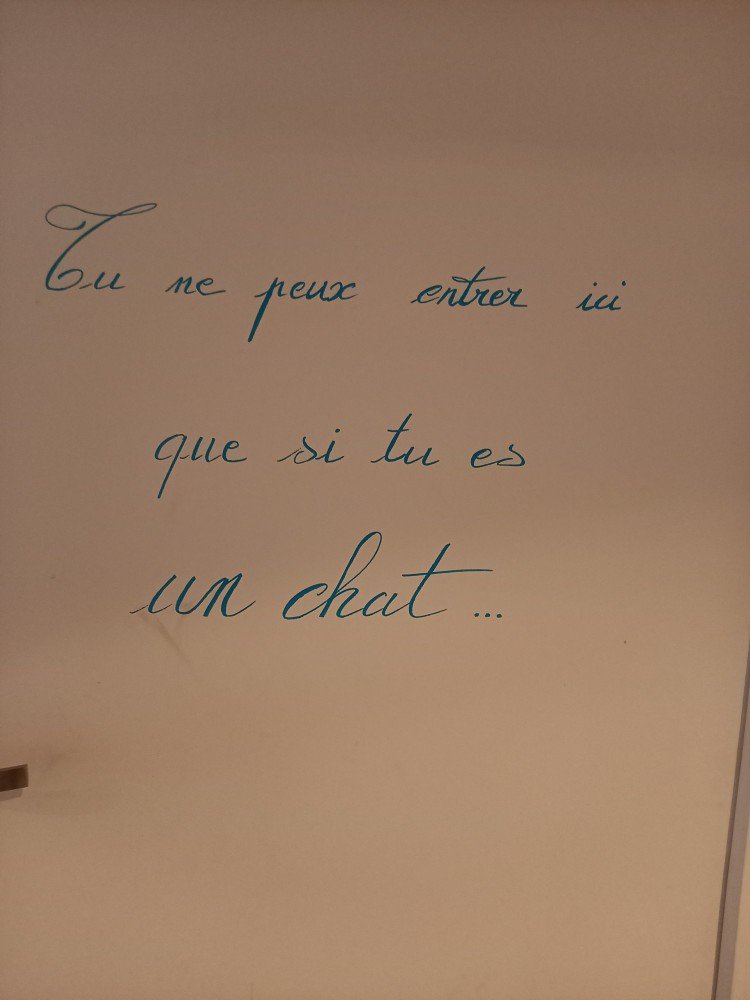 Tu ne peux entrer ici
que si tu es
un chat...